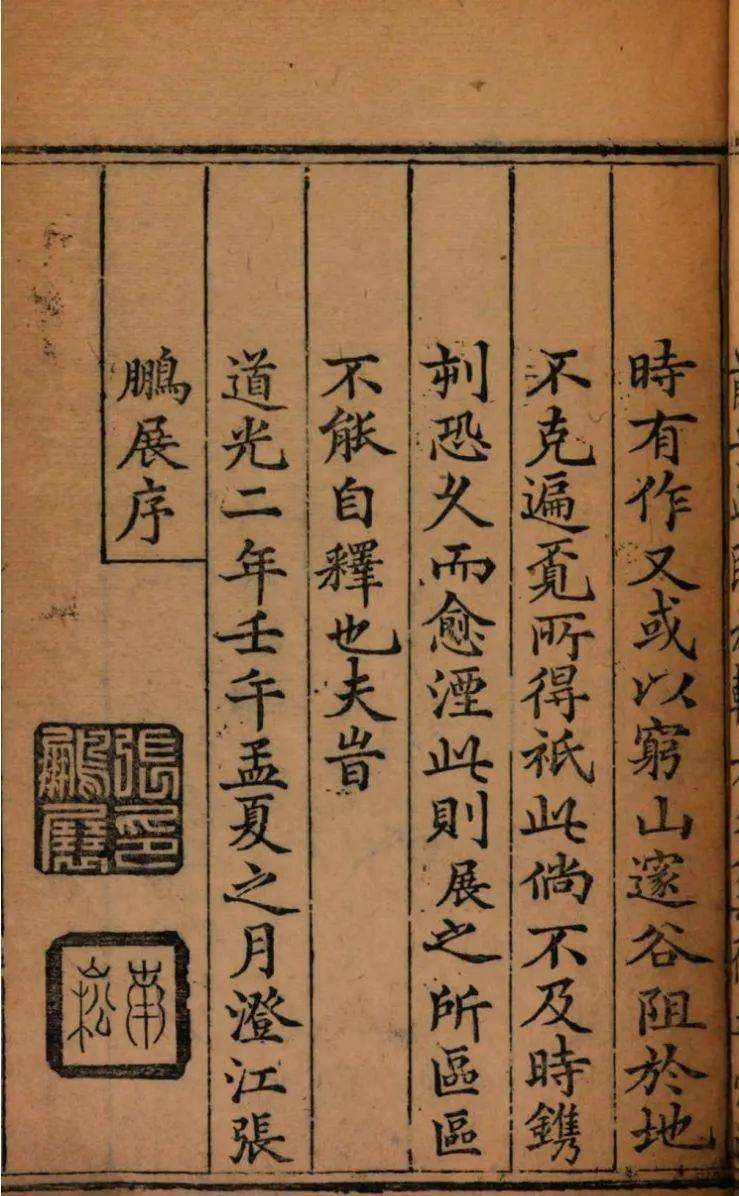 時有作又或以窮山邃谷阻於地
不克遍覓所得祇此倘不及時鐫
刋恐久而愈湮此則展之所區區
不能自釋也夫旹
道光二年壬午孟夏之月澄江張
鵬展序
張印鵬展
南崧